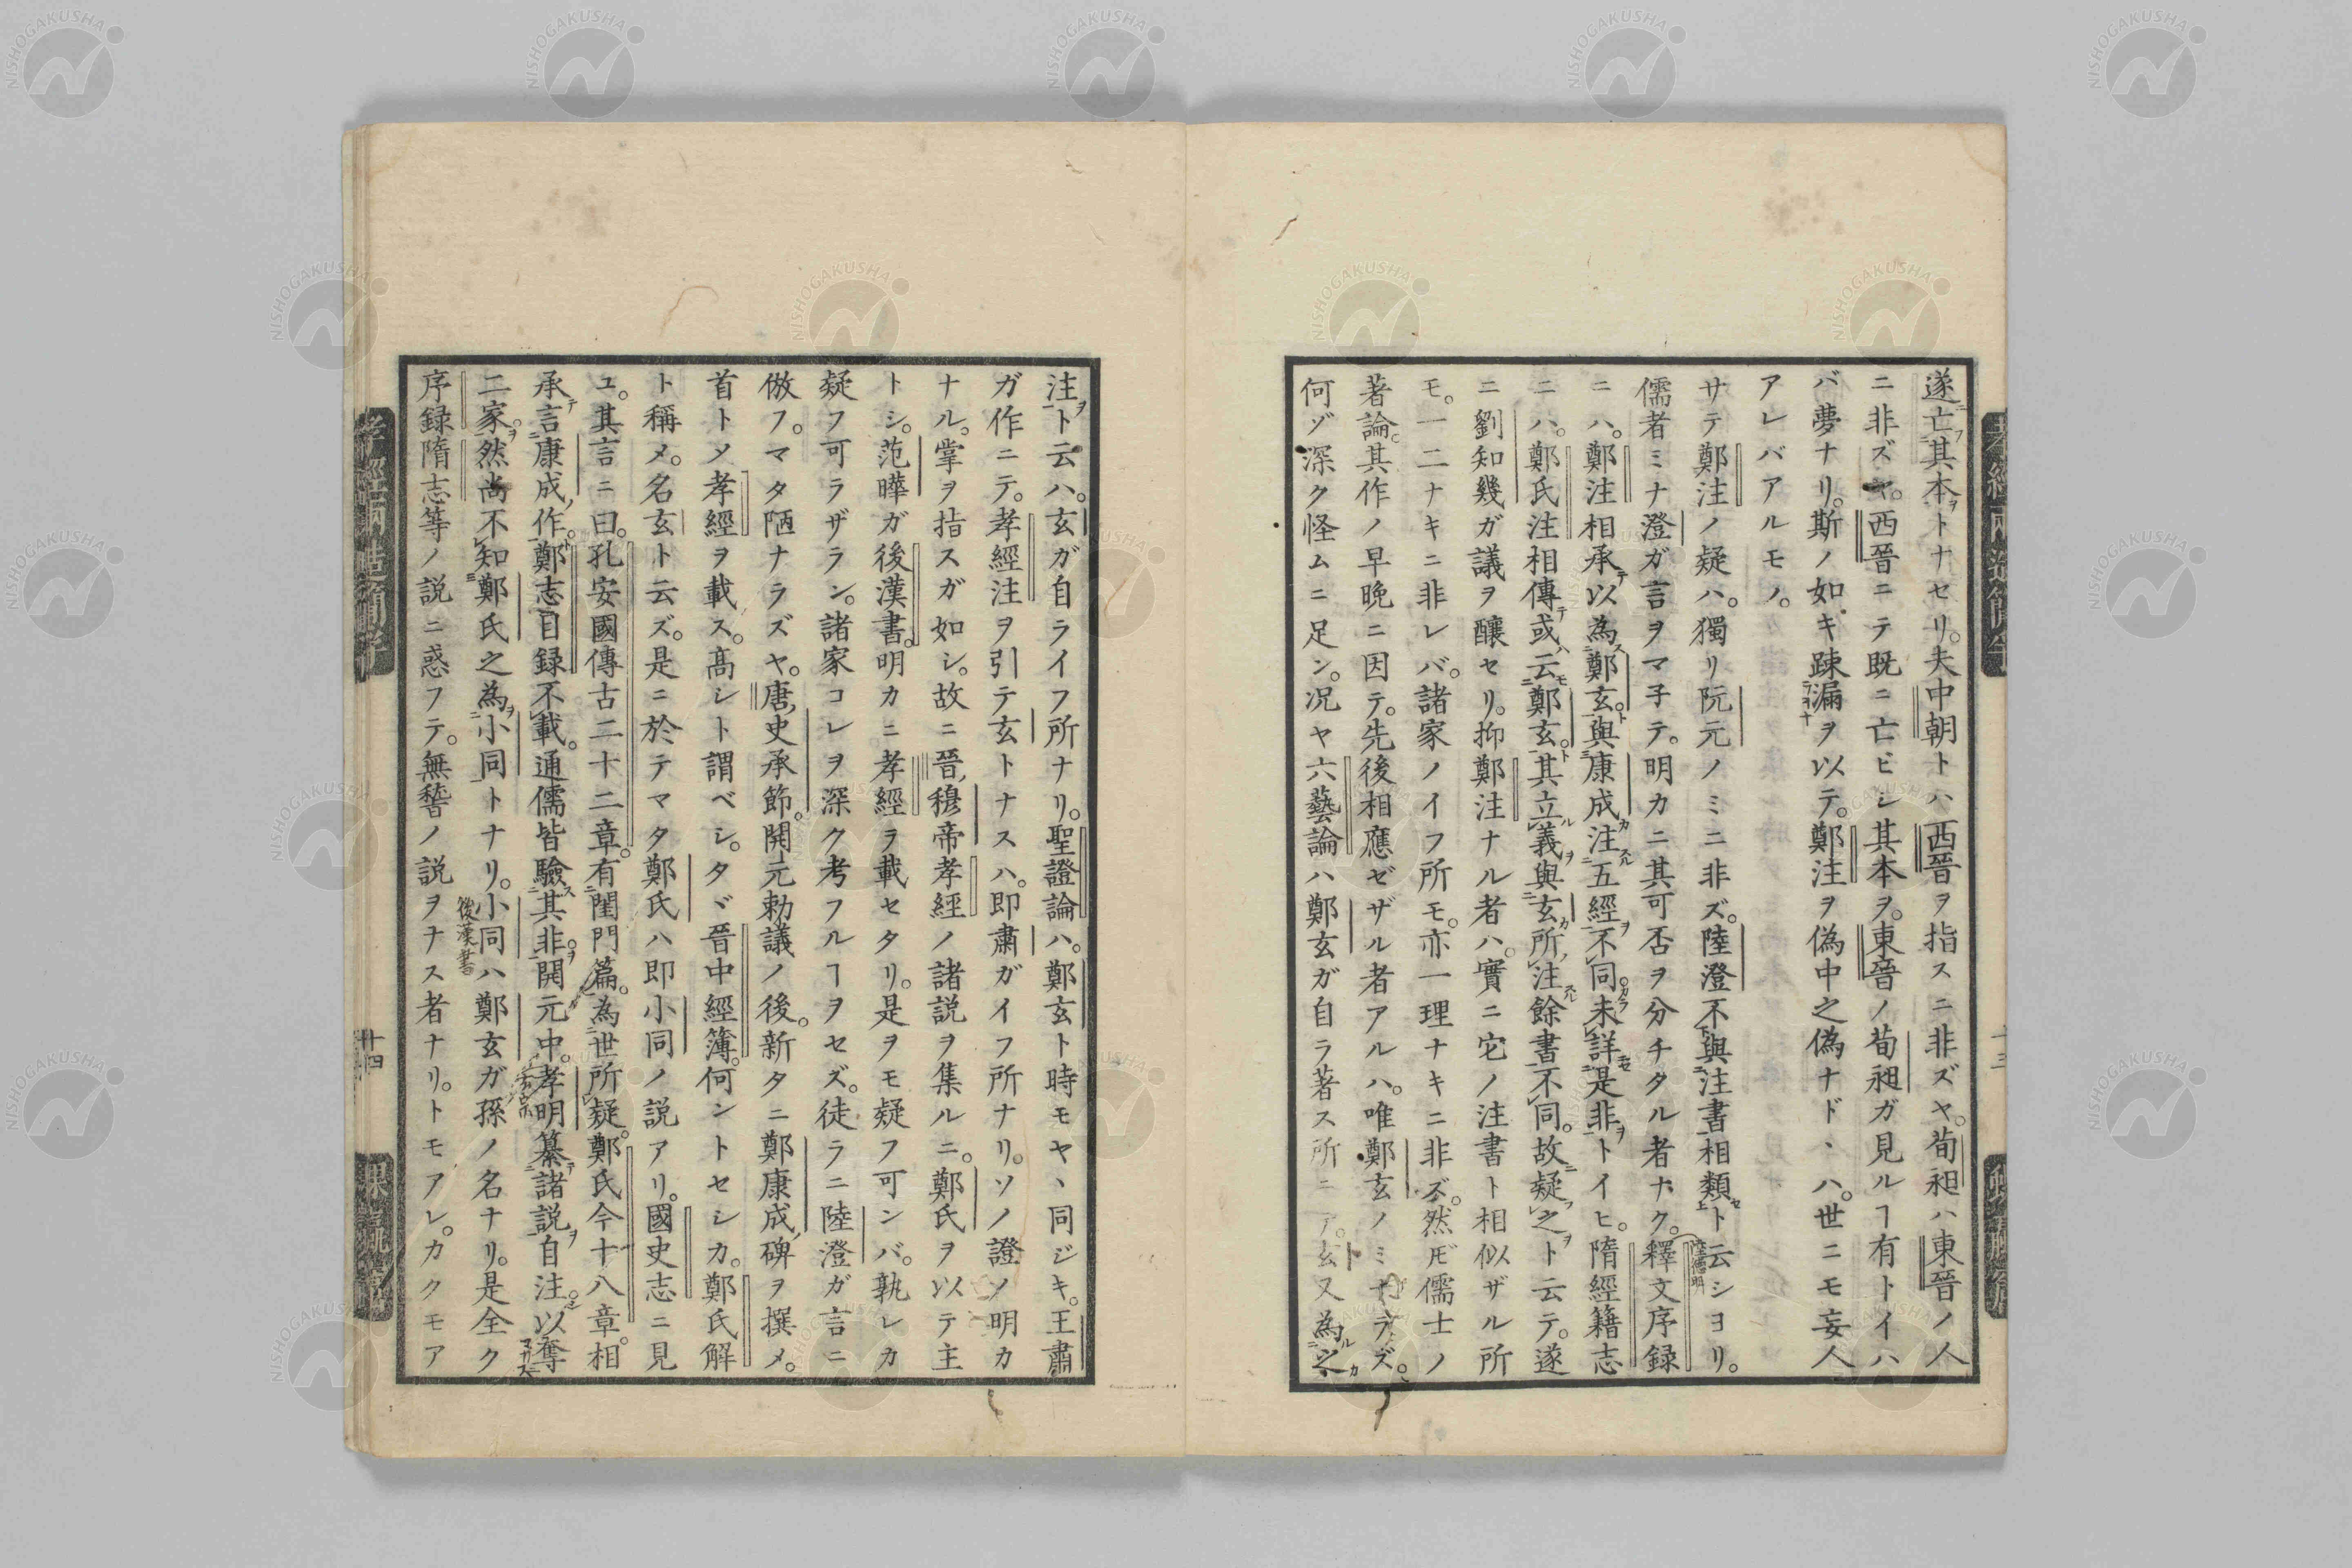 遂亡其本ヲトナセリ。夫中朝トハ西晉ヲ指スニ非ズヤ。荀昶ハ東晉ノ人
ニ非ズヤ。西晉ニテ既ニ亡ビシ其本ヲ。東晉ノ荀昶ガ見ルヿ有トイハ
バ夢ナリ。斯ノ如キ踈漏ヲ以テ。鄭注ヲ偽中之偽ナドヽハ。世ニモ妄人
アレバアルモノ。
サテ鄭注ノ疑ハ。獨リ阮元ノミニ非ズ。陸澄不與注書相類ト云シヨリ。
儒者ミナ澄ガ言ヲマ子テ。明カニ其可否ヲ分チタル者ナク。釋文序録
陸德明
ニハ。鄭注相承テ以為鄭玄。與康成注五經不同。未詳是非ヲトイヒ。隋經籍志
ニハ。鄭氏注相傳テ或ハ云鄭玄。其立義與玄所注餘書不同。故疑之ヲト云テ。遂
ニ劉知幾ガ議ヲ釀セリ。抑鄭注ナル者ハ。實ニ它ノ注書ト相似ザル所
モ。一二ナキニ非レバ。諸家ノイフ所モ。亦一理ナキニ非ズ。然𪜈儒士ノ
著論。其作ノ早晩ニ因テ。先後相應ゼザル者アルハ。唯鄭玄ノミナラズ。
何ゾ深ク怪ムニ足ン。況ヤ六藝論ハ鄭玄ガ自ラ著ス所ニア。玄又為之
注ヲト云ハ。玄ガ自ライフ所ナリ。聖證論ハ。鄭玄ト時モヤヽ同ジキ。王肅
ガ作ニテ。孝經注ヲ引テ玄トナスハ。即肅ガイフ所ナリ。ソノ證ソノ明カ
ナル。掌ヲ指スガ如シ。故ニ晉穆帝孝經ノ諸説ヲ集ルニ。鄭氏ヲ以テ主
トシ。范曄ガ後漢書。明カニ孝經ヲ載セタリ。是ヲモ疑フ可ンバ。孰レカ
疑フ可ラザラン。諸家コレヲ深ク考フルヿヲセズ。徒ラニ陸澄ガ言ニ
倣フ。マタ陋ナラズヤ。唐史承節。開元勅議ノ後。新タニ鄭康成碑ヲ撰メ。
首トメ孝經ヲ載ス。高シト謂ベシ。タヾ晉中經簿。何ントセシカ。鄭氏解
ト稱メ。名玄ト云ズ。是ニ於テマタ鄭氏ハ即小同ノ説アリ。國史志ニ見
ユ。其言ニ曰。孔安國傳古二十二章。有閨門篇。為世所疑。鄭氏今十八章。相
承テ言康成作。鄭志目録不載。通儒皆驗其非ヲ。開元中。孝明纂諸説ヲ自注。以奪
二家ヲ。然尚不知鄭氏之為小同トナリ。小同ハ鄭玄ガ孫ノ名ナリ。是全ク
後漢書
序録隋志等ノ説ニ惑フテ。無稽ノ説ヲナス者ナリ。トモアレ。カクモア
廿四